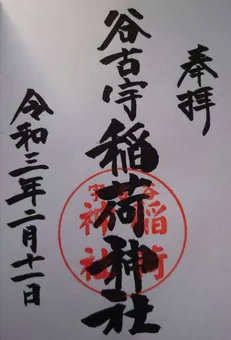 奉拝
谷古宇稲荷神社
令和三年二月十一日